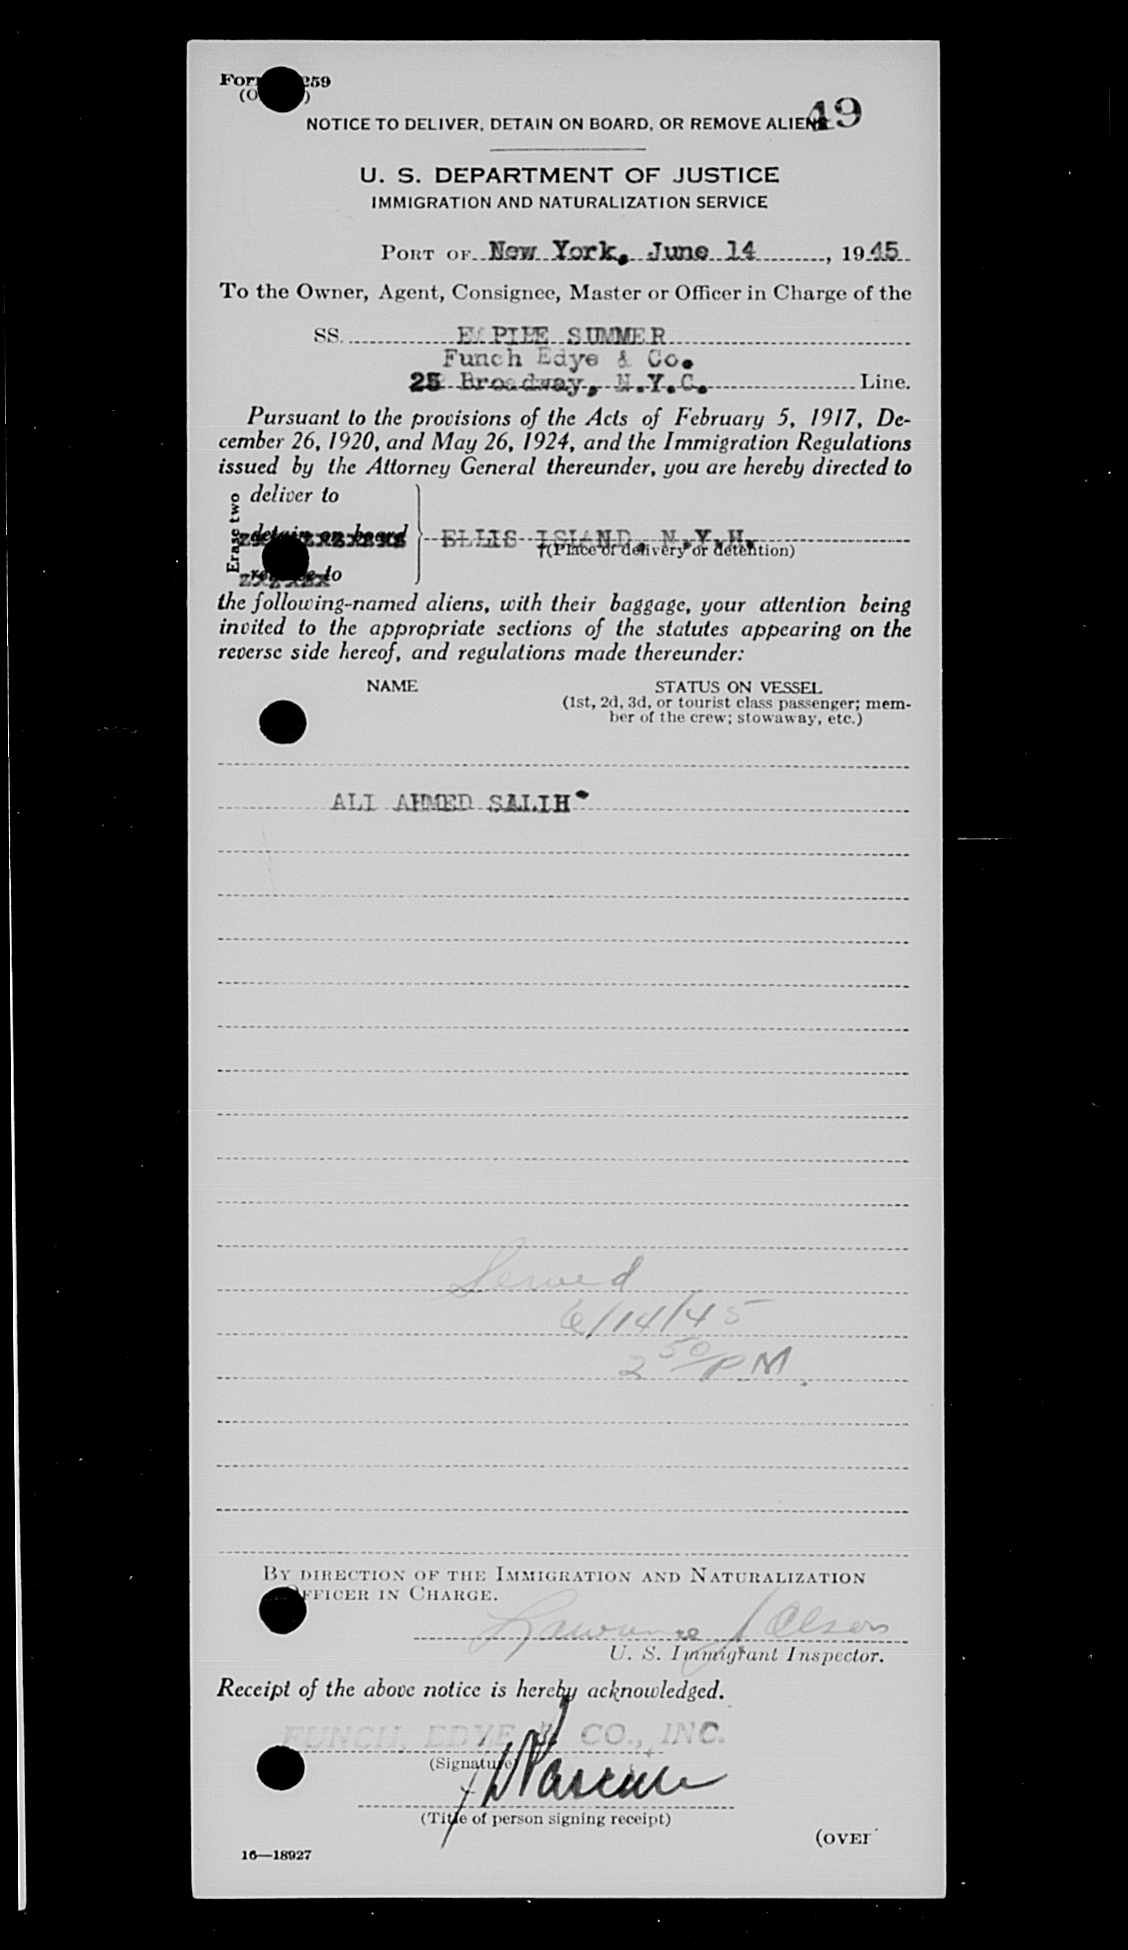 Form 259
49
NOTICE TO DELIVER, DETAIN ON BOARD, OR REMOVE ALIENS
U. S. DEPARTMENT OF JUSTICE
IMMIGRATION AND NATURALIZATION SERVICE
PORT OF New York, June 14, 1945
To the Owner, Agent, Consignee, Master or Officer in Charge of the
SS. EMPIRE SUMMER
Funch Edye & Co.
25 Broadway, N.Y.C. Line.
Pursuant to the provisions of the Acts of February 5, 1917, De-
cember 26, 1920, and May 26, 1924, and the Immigration Regulations
issued by the Attorney General thereunder, you are hereby directed to
Erase two
deliver to
detain on board
ELLIS ISLAND, N.Y.H.
†(Place of delivery or detention)
remove to
the following-named aliens, with their baggage, your attention being
invited to the appropriate sections of the statutes appearing on the
reverse side hereof, and regulations made thereunder:
NAME STATUS ON VESSEL
(1st, 2d, 3d, or tourist class passenger; mem-
ber of the crew; stowaway, etc.)
ALI AHMED SALIH
Served
6/14/45
2 50/PM.
BY DIRECTION OF THE IMMIGRATION AND NATURALIZATION
OFFICER IN CHARGE.
Lawrence J Olsen
U. S. Immigrant Inspector.
Receipt of the above notice is hereby acknowledged.
FUNCH, EDYE & CO., INC.
(Signature)
(Title of person signing receipt)
(OVER
16—18927